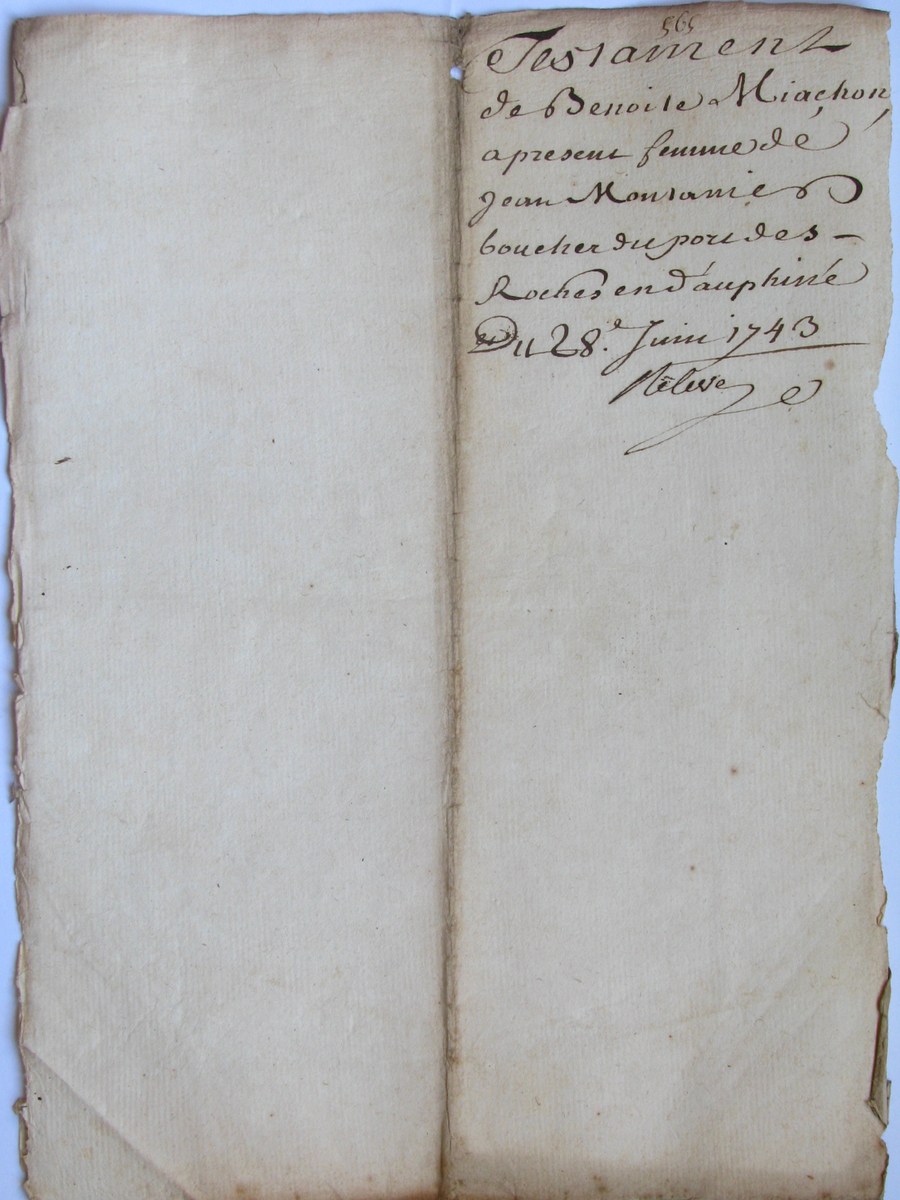 565
Testament
de Benoite Miachon,
apresent femme de
Jean Montanier
boucher du port des -
Roches en d'auphiné
Du 28.e Juin 1743